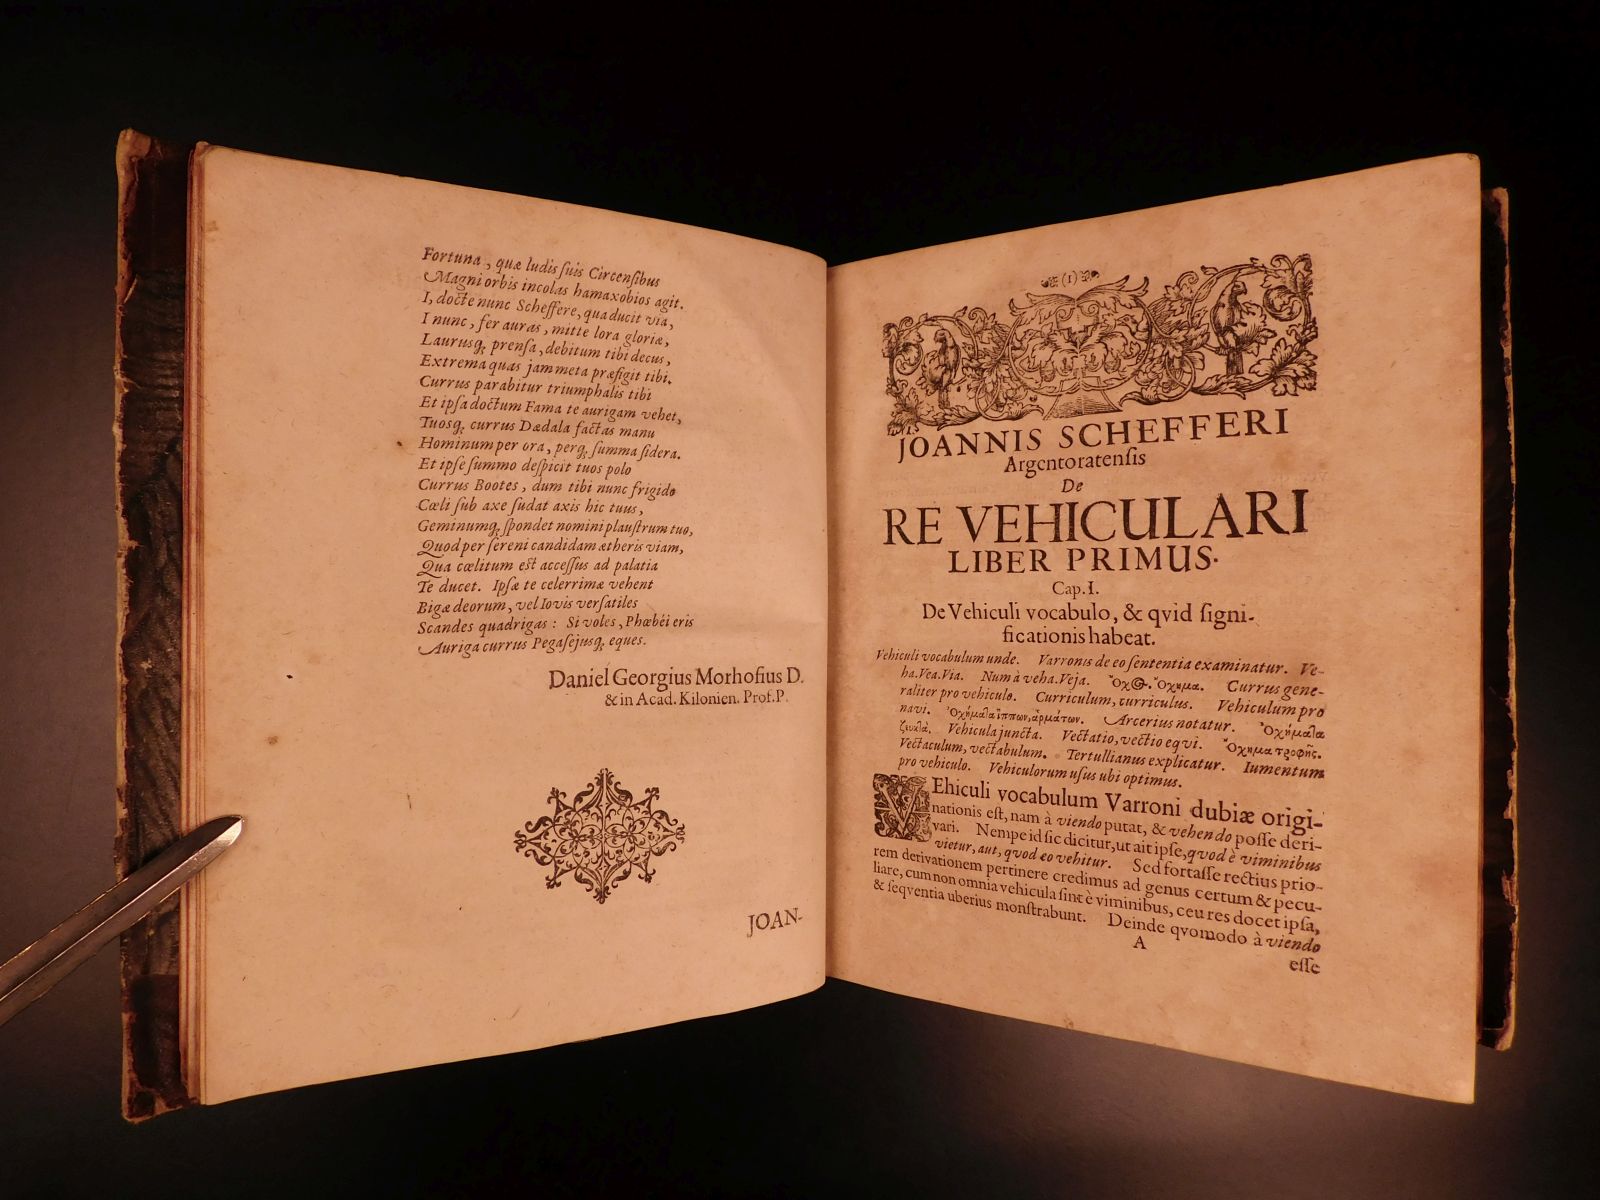 Fortuna, quæ ludis ſuis Circenſibus
Magni orbis incolas hamaxobios agit.
I, docte nunc Scheffere, qua ducit via,
I nunc, fer auras, mitte lora gloriæ,
Laurusq; prenſa, debitum tibi decus,
Extrema quas jam meta præfigit tibi.
Currus parabitur triumphalis tibi
Et ipſa doctum Fama te aurigam vehet,
Tuosq; currus Dædala factas manu
Hominum per ora, perq; summa ſidera.
Et ipſe ſummo deſpicit tuos polo
Currus Bootes, dum tibi nunc frigido
Cœli ſub axe ſudat axis hic tuus,
Geminumq; ſpondet nomini plauſtrum tuo,
Quod per ſereni candidam ætheris viam,
Qua cœlitum eſt acceſſus ad palatia
Te ducet. Ipſæ te celerrimæ vehent
Bigæ deorum, vel Iovis verſatiles
Scandes quadrigas: Si voles, Phœbéi eris
Auriga currus Pegaſejusq; eques.
Daniel Georgius Morhofius D.
& in Acad. Kilonien. Prof. P.
JOAN-
(1)
JOANNIS SCHEFFERI
Argentoratenſis
De
RE VEHICULARI
LIBER PRIMUS.
Cap. I.
De Vehiculi vocabulo, & qvid ſigni-
ficationis habeat.
Vehiculi vocabulum unde. Varronis de eo ſententia examinatur. Ve-
ha. Vea. Via. Num à veha. Veja. Ὄχος. Ὄχημα. Currus gene-
raliter pro vehiculo. Curriculum, curriculus. Vehiculum pro
navi. Ὀχήμαλα ἵππων, ἁρμάτων. Arcerius notatur. Ὀχήμαλα
ζευκλὰ. Vehicula juncta. Vectatio, vectio eqvi. Ὄχημα τροφῆς.
Vectaculum, vectabulum. Tertullianus explicatur. Iumentum
pro vehiculo. Vehiculorum uſus ubi optimus.
VEhiculi vocabulum Varroni dubiæ origi-
nationis eſt, nam à viendo putat, & vehendo poſſe deri-
vari. Nempe id ſic dicitur, ut ait ipſe, qvod è viminibus
vietur, aut, qvod eo vehitur. Sed fortaſſe rectius prio-
rem derivationem pertinere credimus ad genus certum & pecu-
liare, cum non omnia vehicula ſint è viminibus, ceu res docet ipſa,
& ſeqventia uberius monſtrabunt. Deinde qvomodo à viendo
A
eſſe